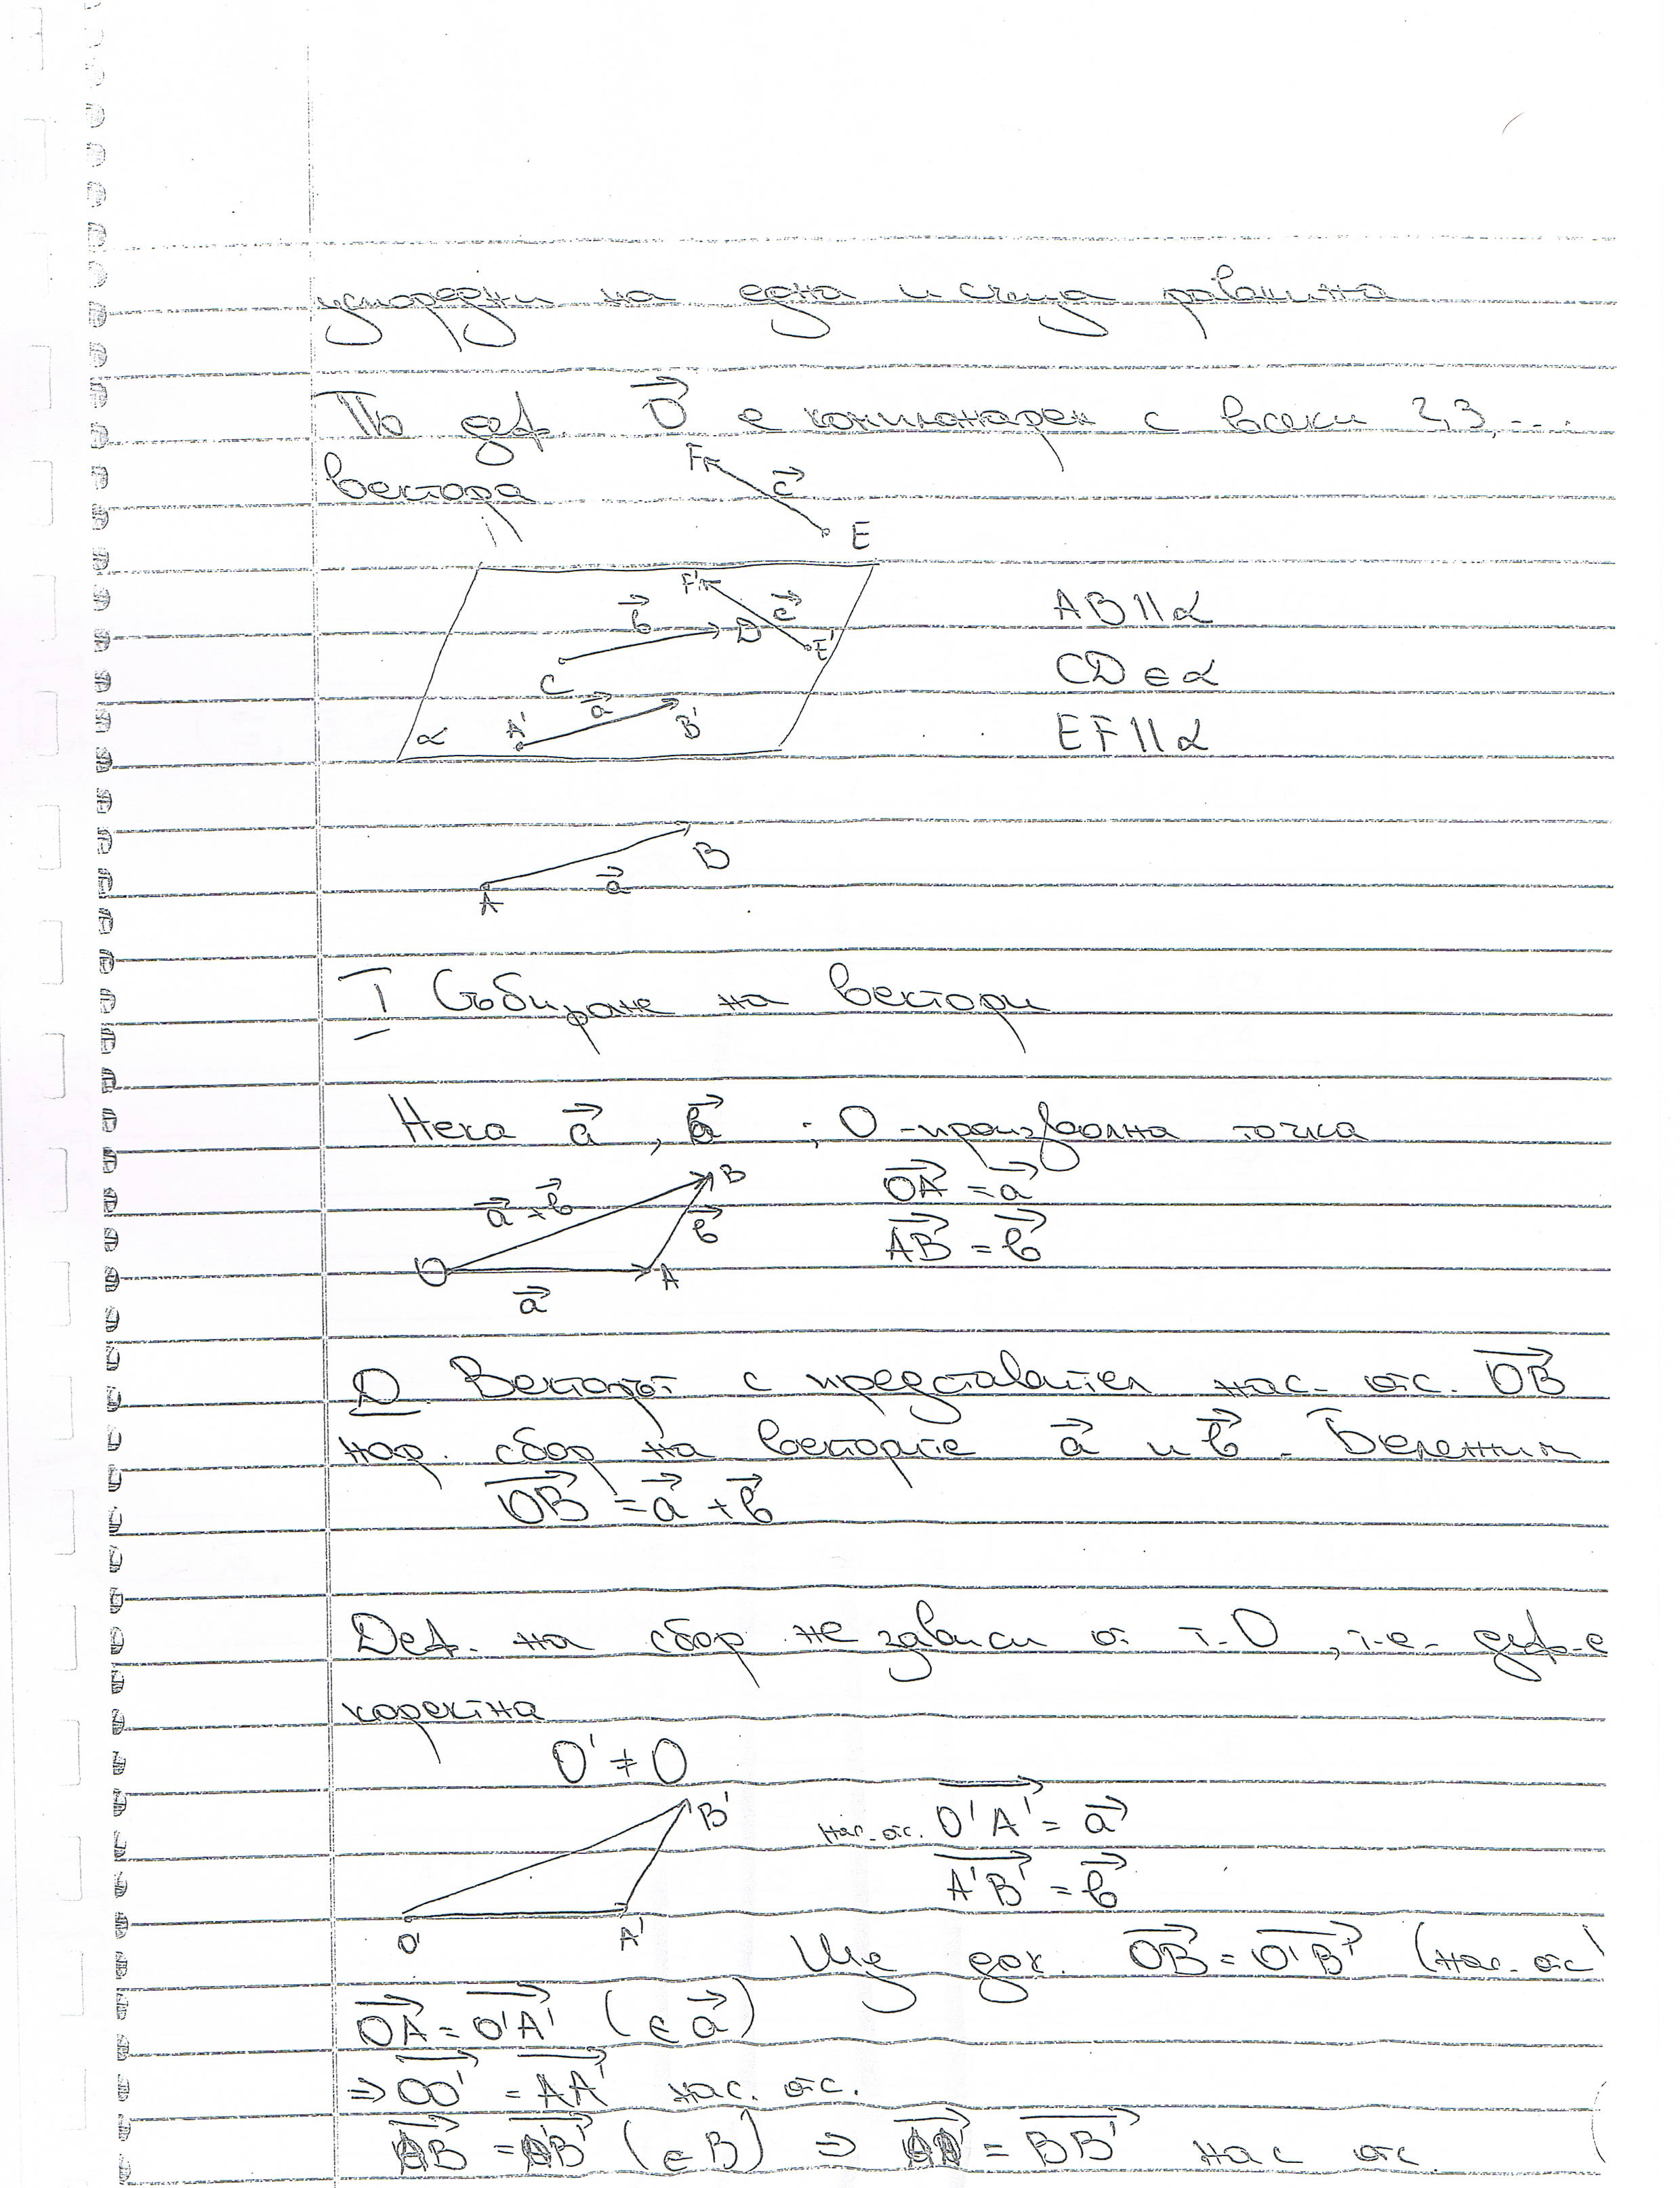 успоредни на една и съща равнина
По деф. O⃗ е компланарен с всеки 2,3,....
вектора
F c⃗
E
F' c⃗
b⃗ D E'
C a⃗
α A' B'
AB || α
CD ∈ α
EF || α
B
A a⃗
I Събиране на вектори
Нека a⃗, b⃗ ; O - произволна точка
a⃗ + b⃗ B
b⃗
O A
a⃗
OA⃗ = a⃗
AB⃗ = b⃗
D Векторът с представител нас. отс. OB⃗
нар. сбор на векторите a⃗ и b⃗. Бележим
OB⃗ = a⃗ + b⃗
Деф. на сбор не зависи от т. O, т.е. деф. е
коректна
O' ≠ O
B'
O' A'
нас. отс. O'A'⃗ = a⃗
A'B'⃗ = b⃗
Ще док. OB⃗ = O'B'⃗ (нас. отс)
OA⃗ = O'A'⃗ (∈ a⃗)
⇒ OO'⃗ = AA'⃗ нас. отс.
AB⃗ = A'B'⃗ (∈ B) ⇒ AA'⃗ = BB'⃗ нас отс.